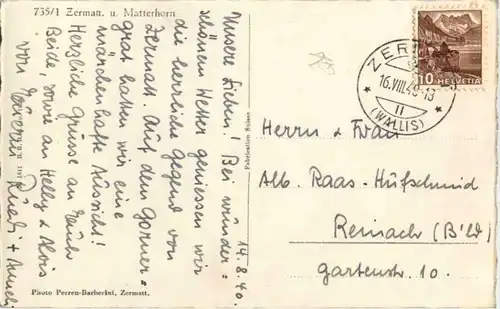 735/1 Zermatt u. Matterhorn
14.8.40.
Unsere Lieben! Bei wunder=
schönem Wetter geniessen wir
die herrliche Gegend von
Zermatt. Auf dem Gorner=
grat hatten wir eine
märchenhafte Aussicht!
Herzliche Grüsse an Euch
Beide, sowie an Helly & Alois
von Eueren Ruedi +
Photo Perren-Barberini, Zermatt.
Fabrication Suisse
ZERMATT
16.VIII.40-13
II
(WALLIS)
10 HELVETIA
Herrn & Frau
Alb. Raas-Hufschmid
Reinach (B'ld)
Gartenstr. 10.